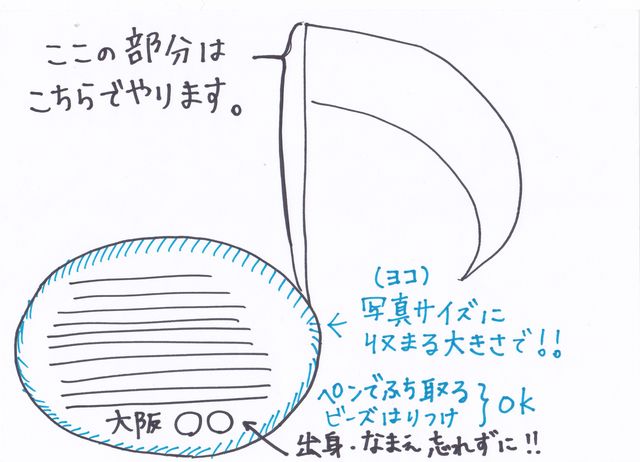 ここの部分は
こちらでやります。
(ヨコ)
写真サイズに
収まる大きさで!!
ペンでふち取る
ビーズはりつけ
OK
大阪 ○○
出身・なまえ 忘れずに!!